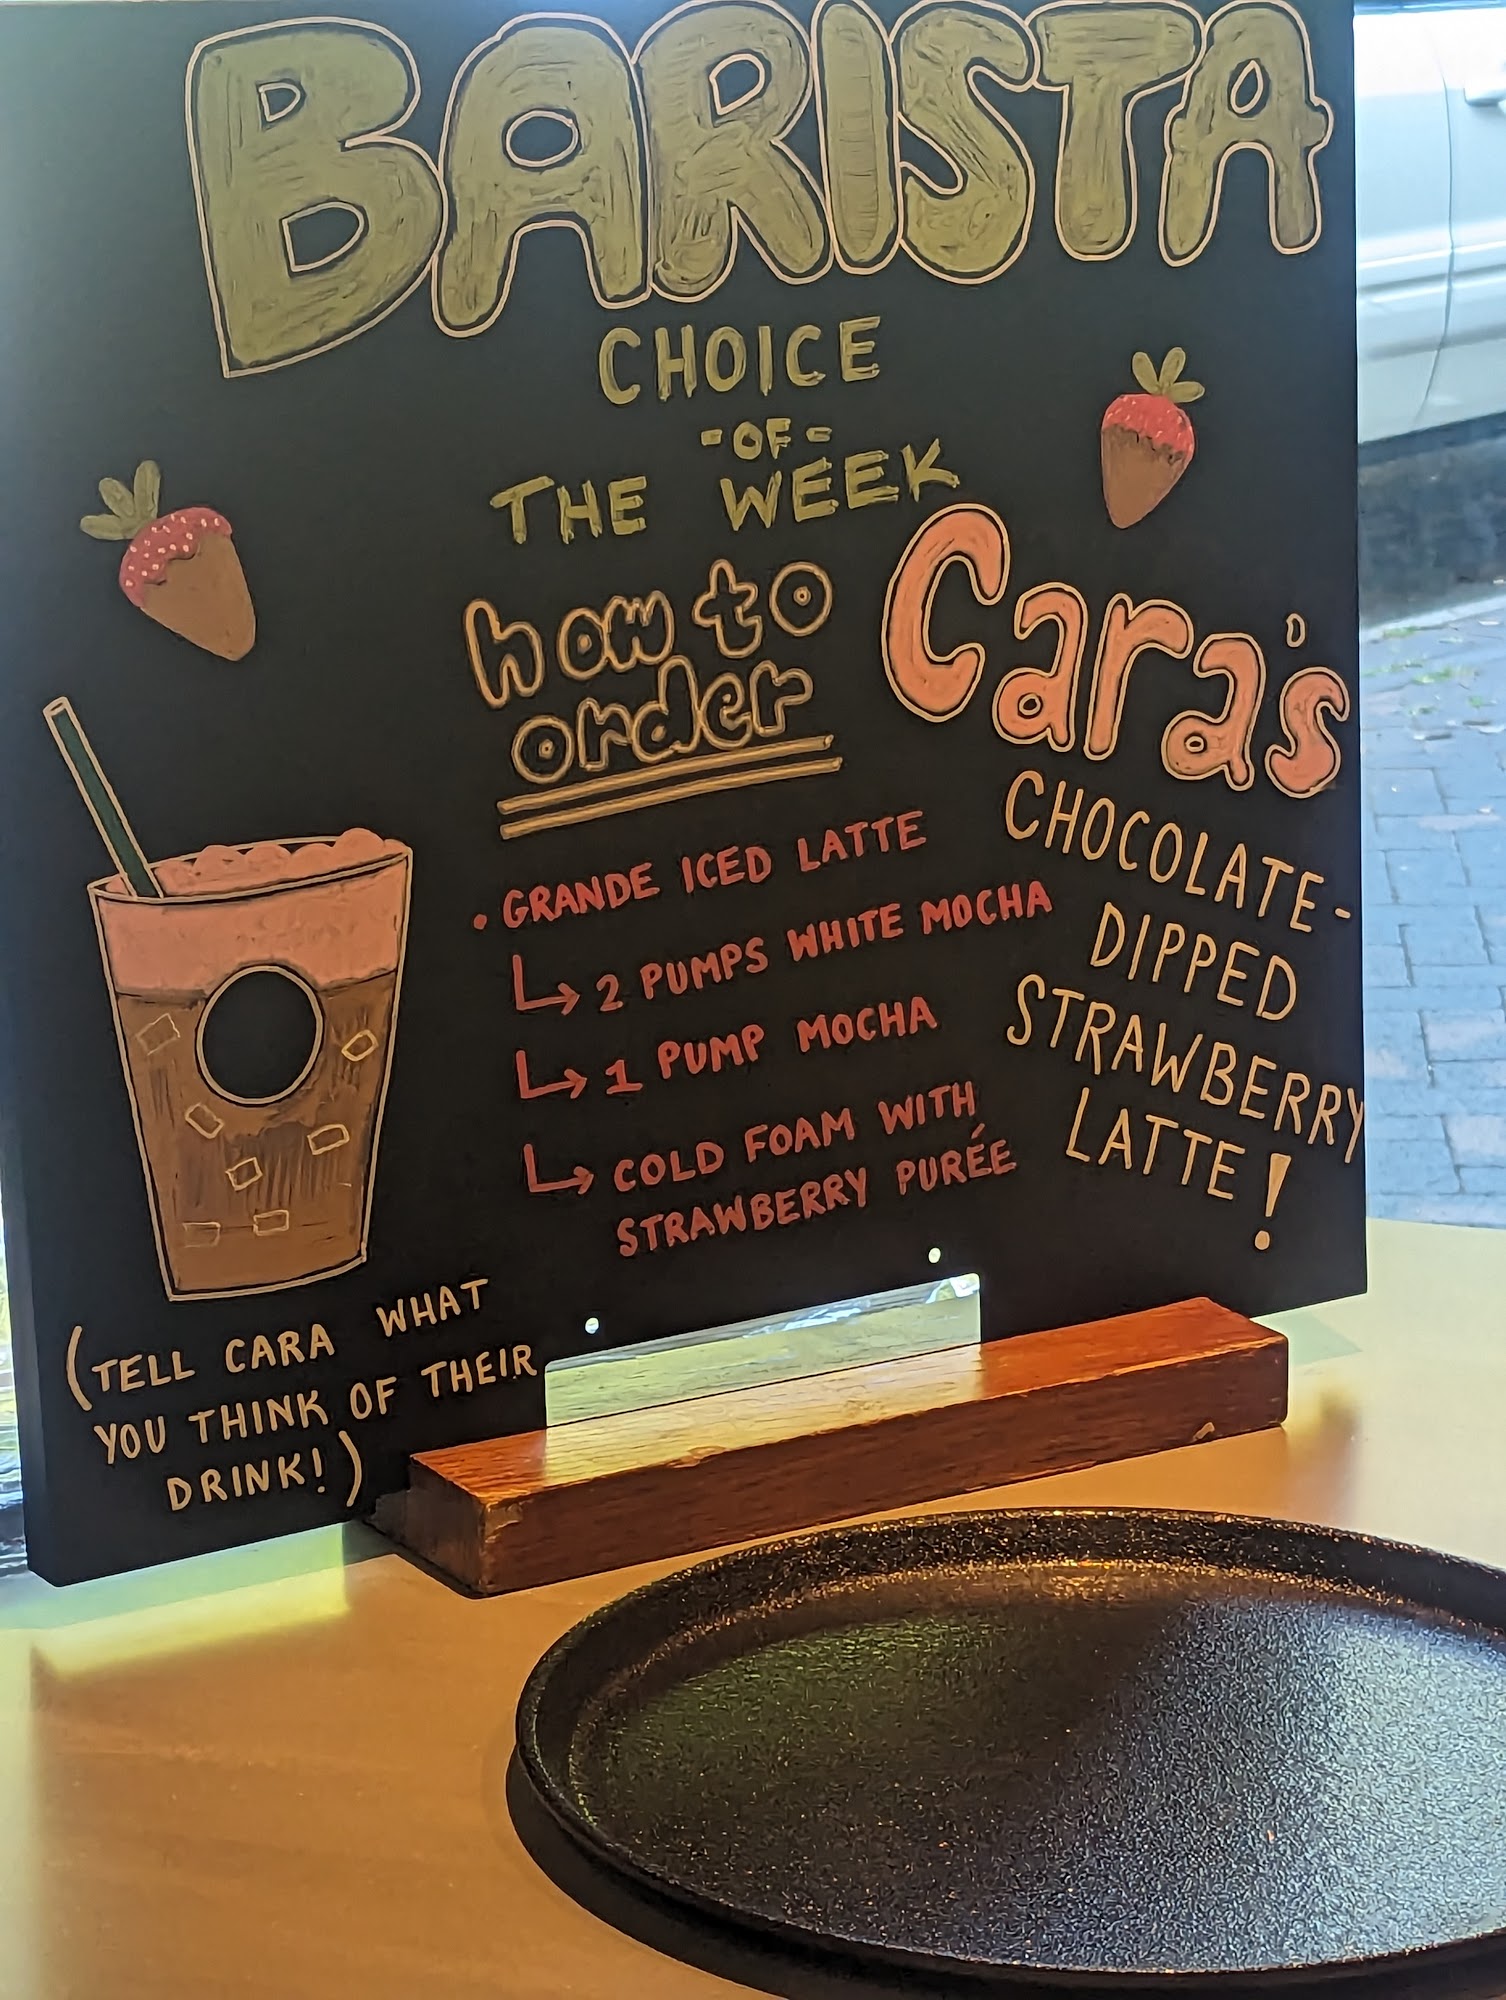 BARISTA
CHOICE
-OF-
THE WEEK
how to
order
• GRANDE ICED LATTE
↳ 2 PUMPS WHITE MOCHA
↳ 1 PUMP MOCHA
↳ COLD FOAM WITH
STRAWBERRY PURÉE
Cara's
CHOCOLATE-
DIPPED
STRAWBERRY
LATTE!
(TELL CARA WHAT
YOU THINK OF THEIR
DRINK!)